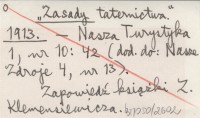 „Zasady taternictwa."
1913. — Nasza Turystyka
1, nr 10: 42 (dod. do: Nasze
Zdroje 4, nr 13).
Zapowiedź książki Z.
Klemensiewicza.